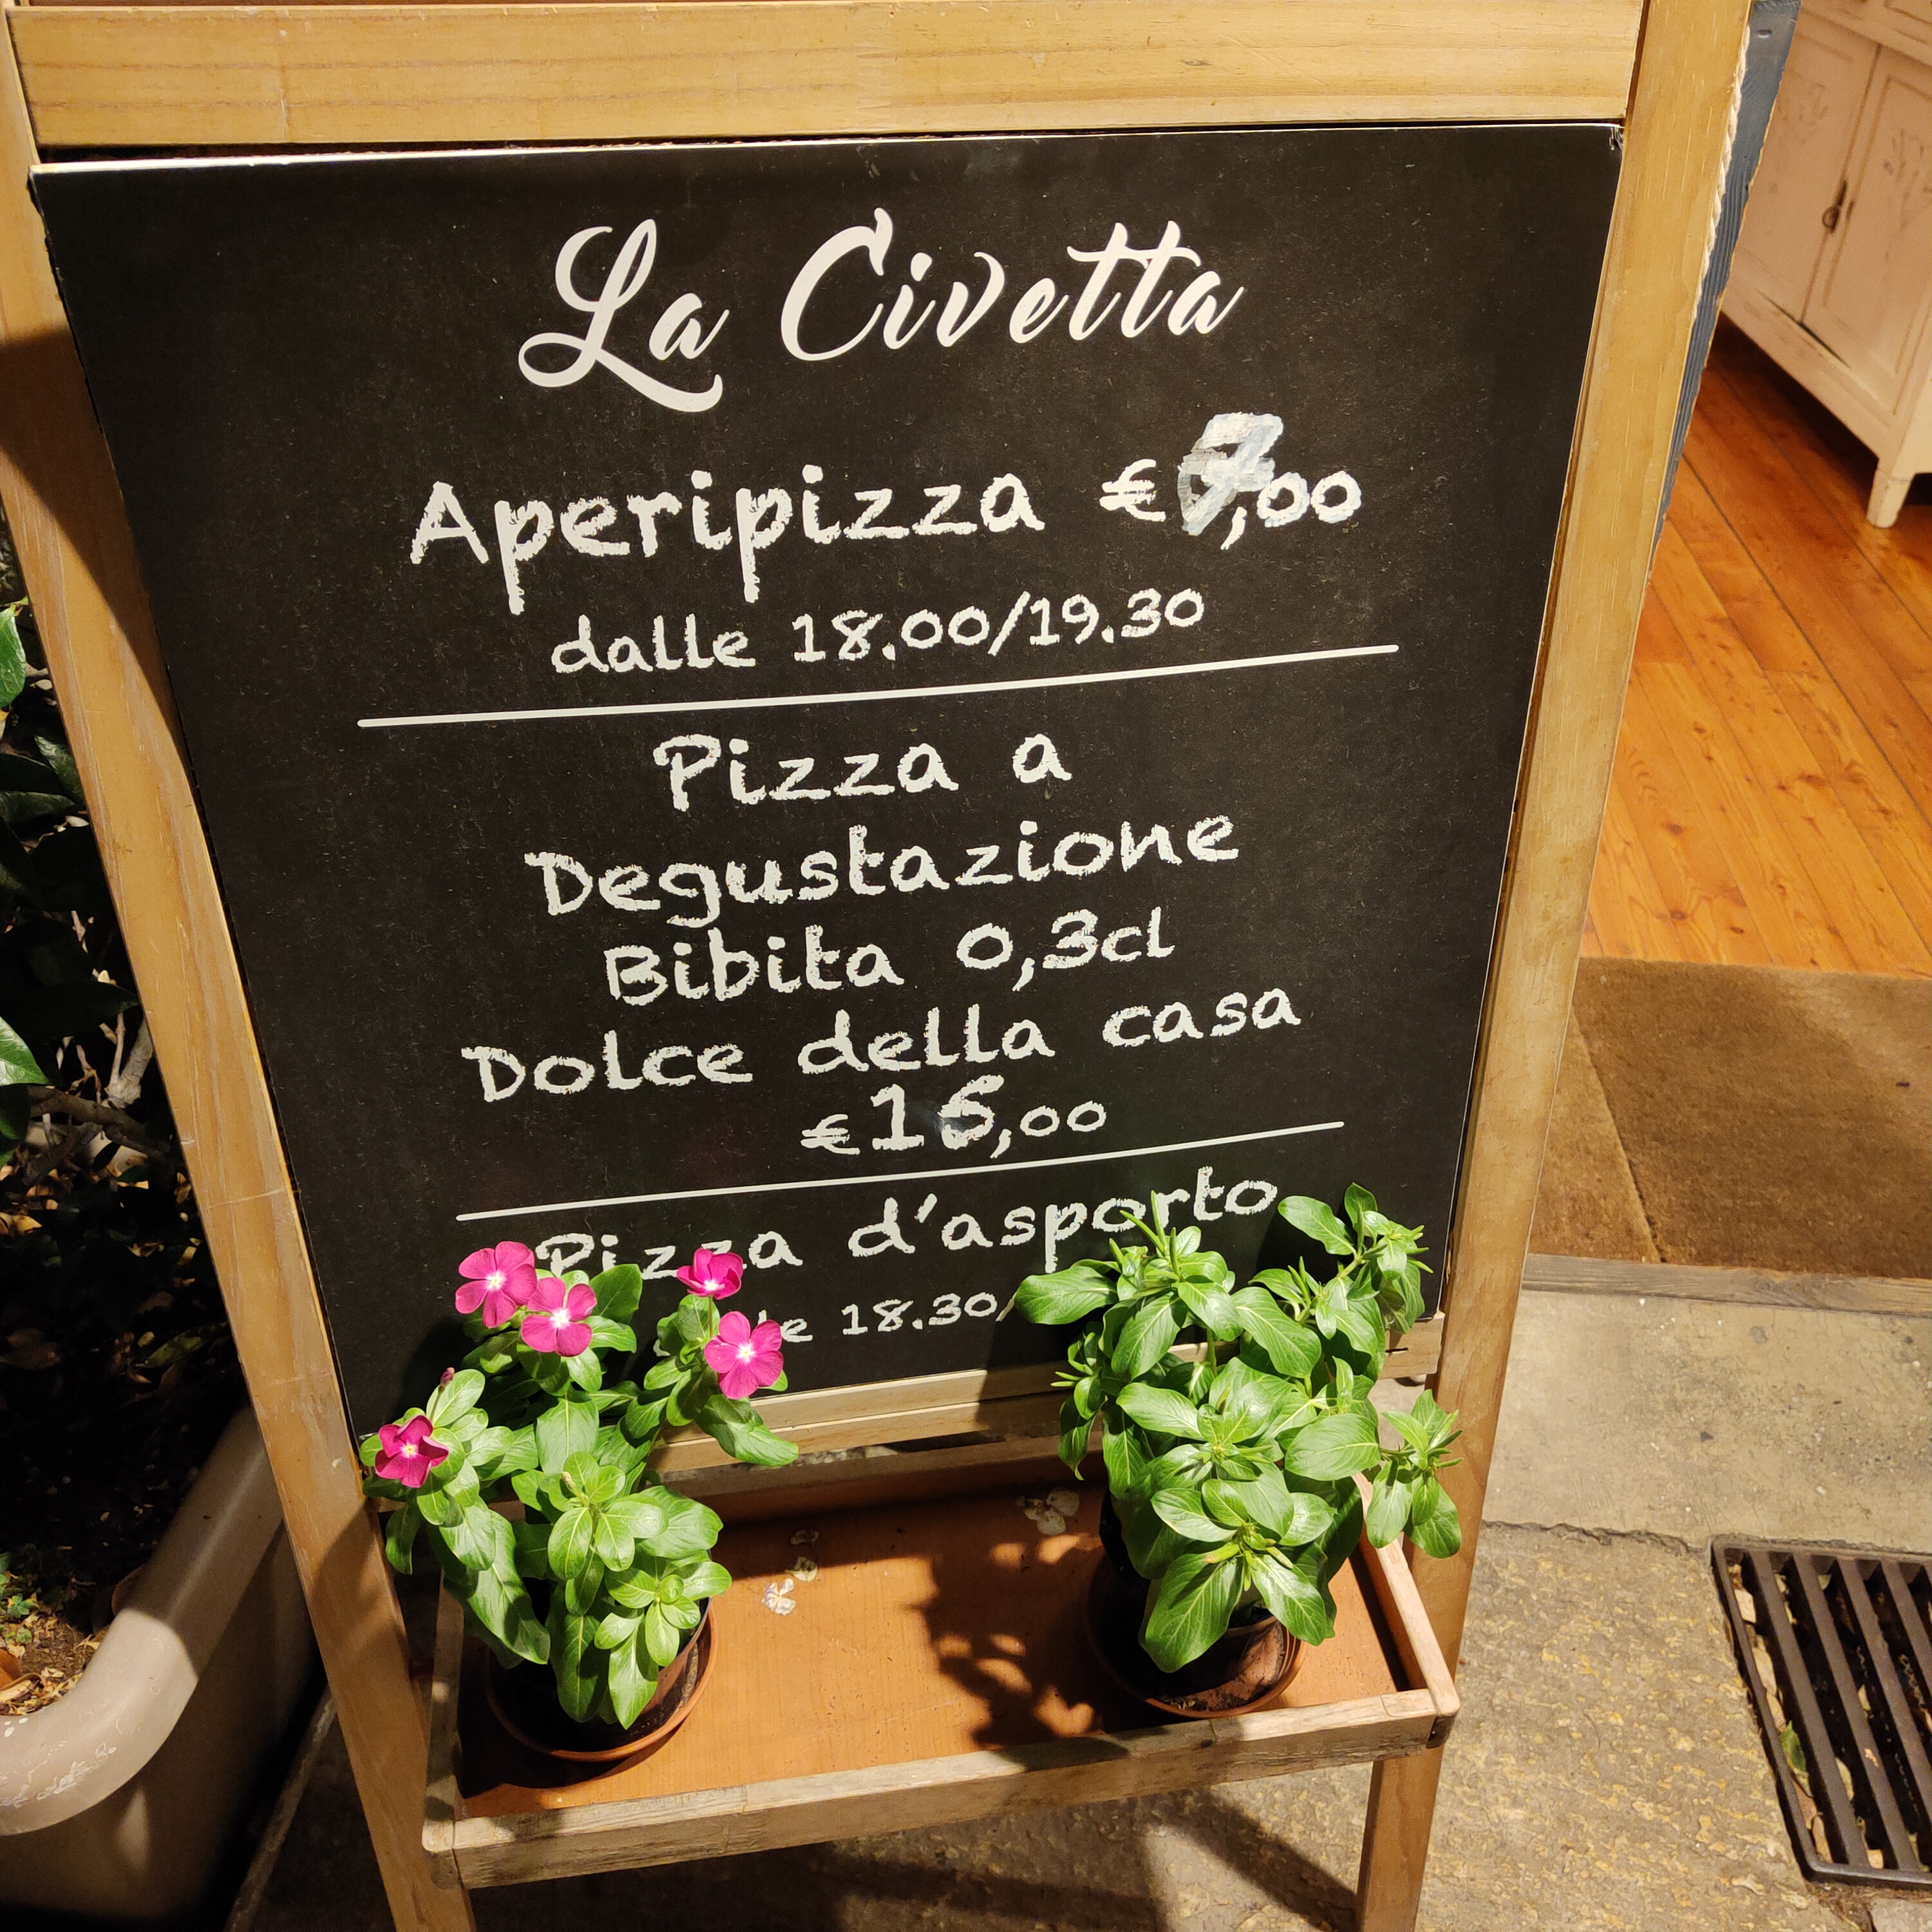 La Civetta
Aperipizza €7,00
dalle 18.00/19.30
Pizza a
Degustazione
Bibita 0,3cl
Dolce della casa
€16,00
Pizza d'asporto
18.30/